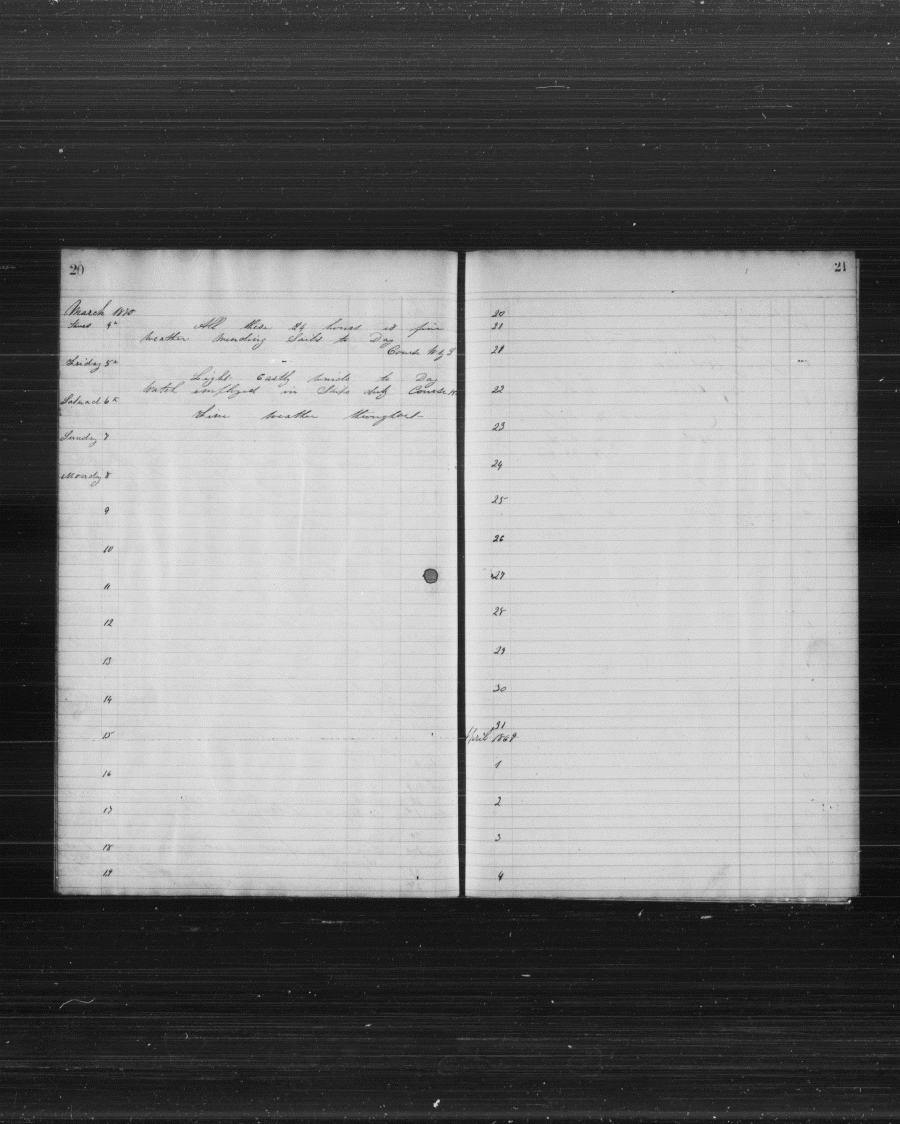 20
March 1880
Thurs 4th All these 24 hours is fine
weather mending Sails to Day
Course W by S
Friday 5th
Light Eastly winds to Day
Watch employed in Sails Course W
Saturd 6th
Fine weather throughout
Sunday 7
Monday 8
9
10
11
12
13
14
15
16
17
18
19
21
20
21
21
22
23
24
25
26
27
28
29
30
31
April
1
2
3
4